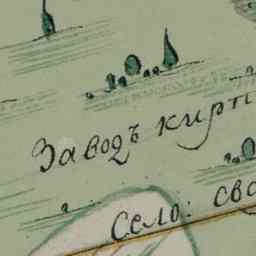 Заводъ кирп
Село: сво